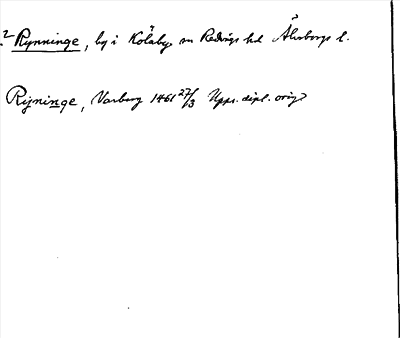 ?2 Rynninge, by i Kölaby sn Redvägs hd Älvsborgs l.
Rijninge, Varberg 1461 27/3 Upps. dipl. orig